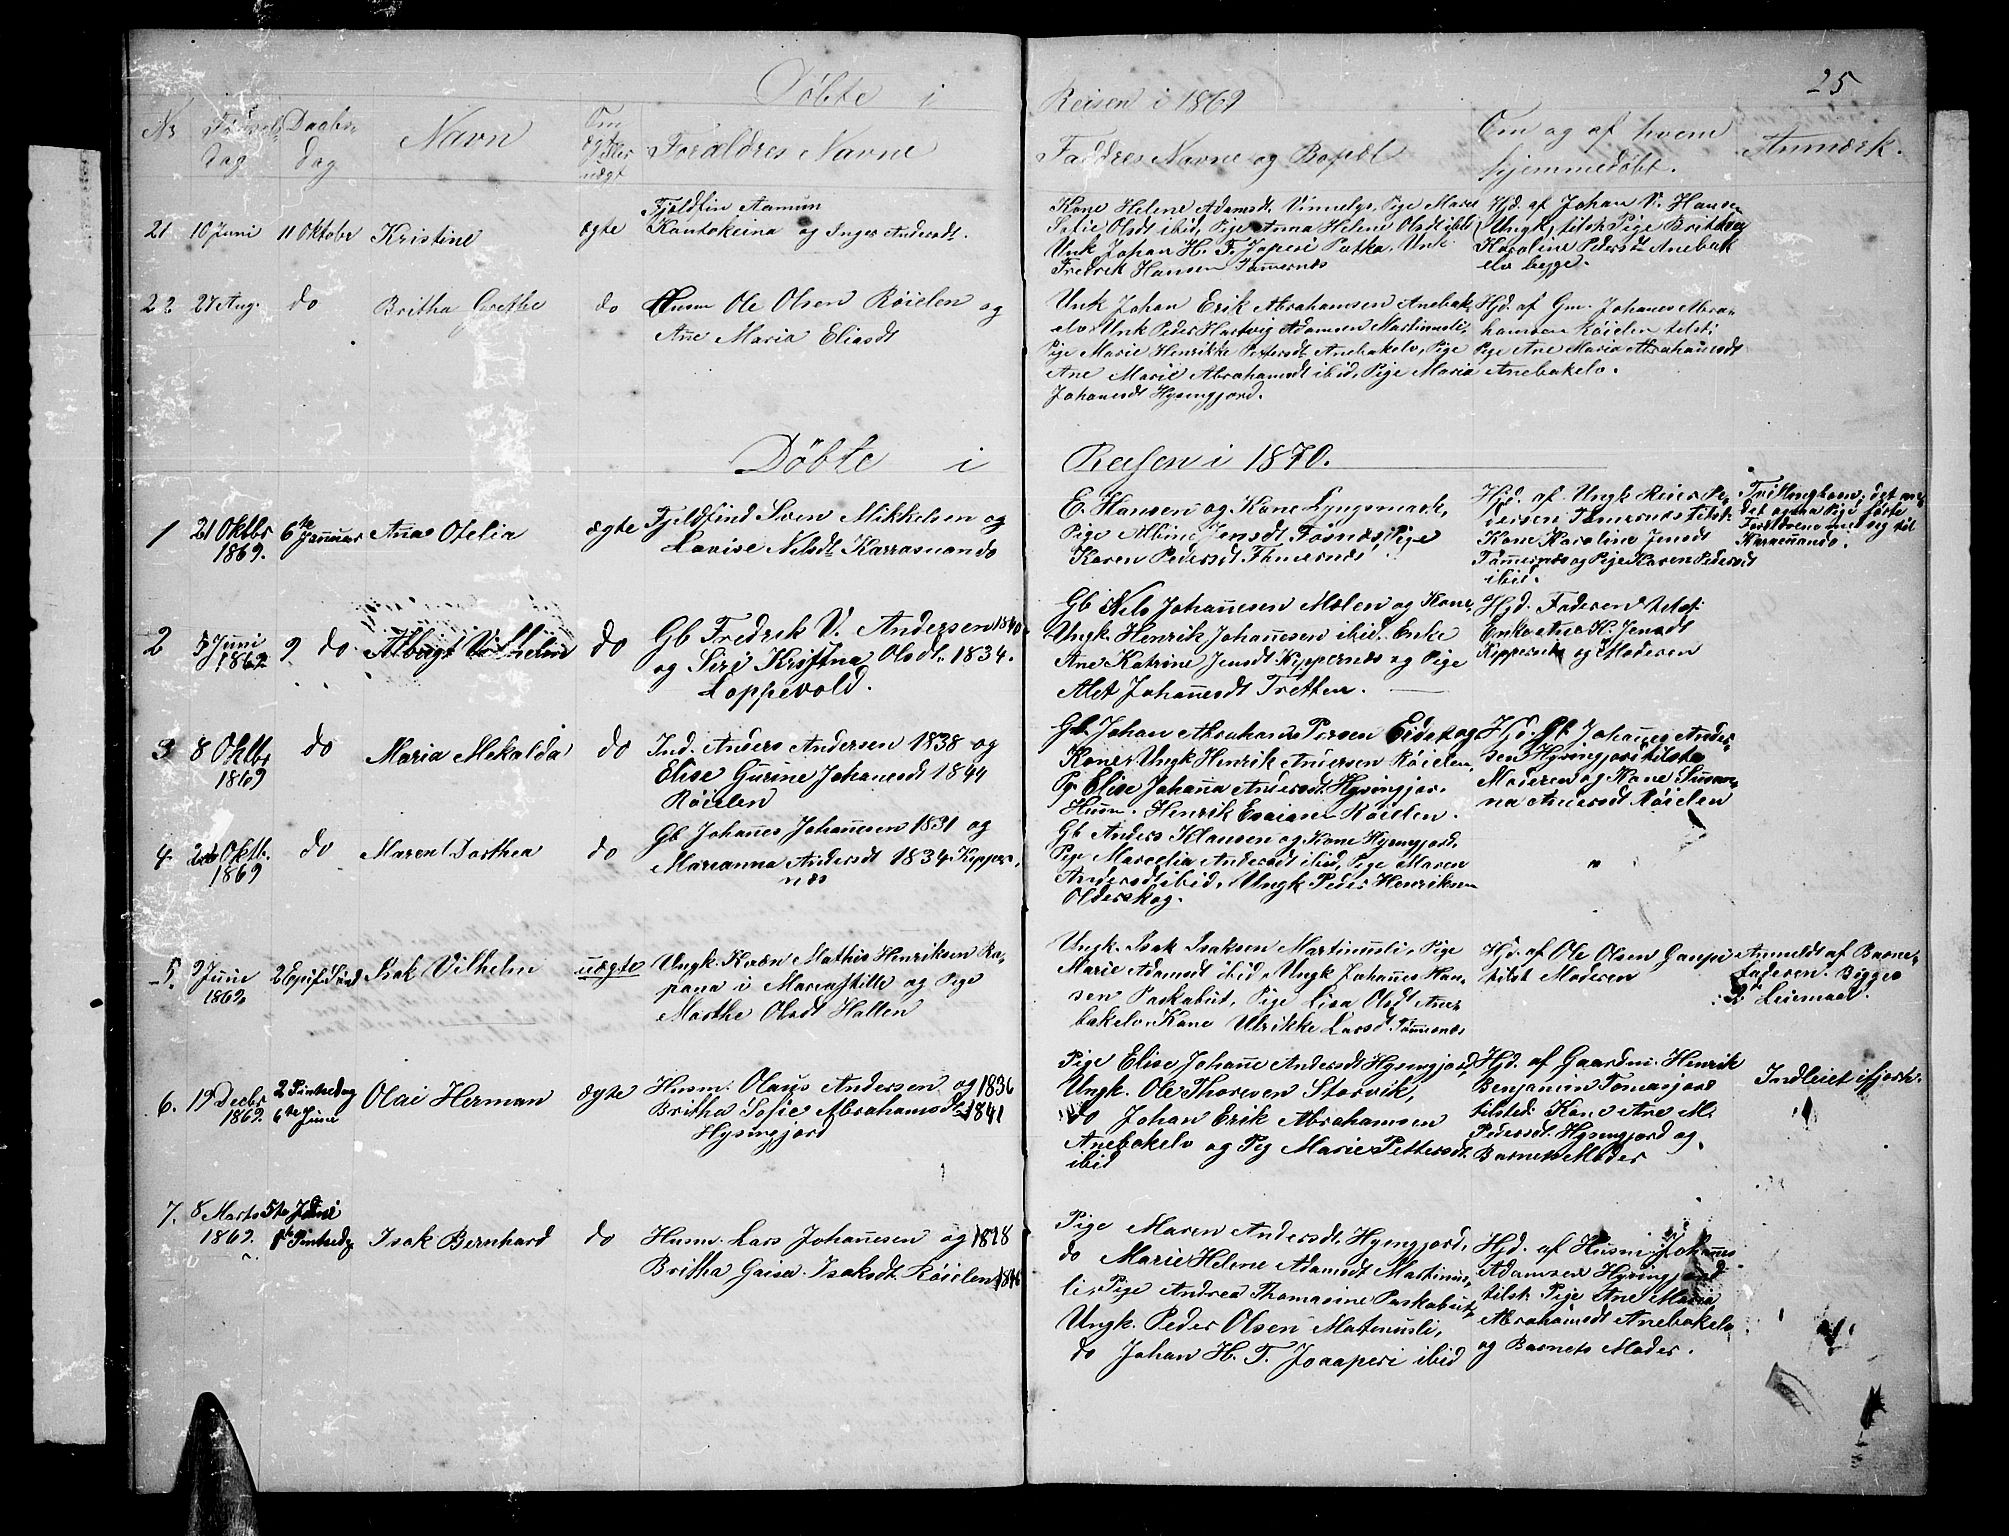 25
Döbte i Reisen i 1869
Nr Fødsels dag Daabs dag Navn Om ægte eller uægt Forældres Navne Faddres Navne og Bopæl Om og af hvem hjemmedöbt. Anmærk.
21 10 Juni 11 Oktobr Kristine ægte
Fjeldfin Aamun
Kautokeino og Inger Andersdt.
Kone Helene Adamsdt. Vinnelys, Pige Marie
Sofie Olsdt ibid, Pige Anna Helene Olsdt ibid
Unk Johan H. T. Joperi Patka, Unk
Fredrik Hansen Tamernes
Hjd. af Johan V. Hansen
Ungk, tilst. Pige Britha og
Karoline Pedersdt Anebak
elv begge.
22 27 Aug. do Britha Grethe do
Husm Ole Olsen Röielen og
Ane Maria Eliasdt
Unk Johan Erik Abrahamsen Anebak
elv, Unk Peder Hartvig Adamsen Martinusli,
Pige Marie Henrikke Petersdt Anebakelv, Pige
Ane Marie Abrahamsdt ibid, Pige Maria
Johanesdt Hysingjord.
Hjd. af Gm. Johanes Abra-
hamsen Röielen tilst:
Pige Ane Maria Abrahamsdt
Anebakelv.
Döbte i Reisen i 1870.
1 21 Oktbr 1869. 6te Januar Ana Otelia ægte
Fjeldfind Sven Mikkelsen og
Lovise Nilsdt Karrasuando
E. Hansen og Kone Lyngsmark,
Pige Albine Jensdt Tösnes, Pige
Karen Pedersdt Tamernes
Hjd. af Ungk Reier Pe-
dersen Tamernes tilst.
Kone Karoline Jensdt
Tamernes og Pige Karen Pedersdt
ibid.
Trillingbarn, det
det ogsaa Pige förte
Forældrene med sig til
Karesuando.
2 5 Juni 1869 9 do Albrigt Vilhelm do
Gb Fredrik V. Andersen 1840
og Siri Kristina Olsdt. 1834.
Loppevold.
Gb Nils Johanesen Molen og Kone
Ungk. Henrik Johanesen ibid. Enke
Ane Katrine Jensdt Kippernes og Pige
Alet Johanesdt Tretten.
Hjd. Faderen tilst:
Enke Ane K. Jensdt
Kippernes og Moderen
3 8 Oktbr 1869 do Maria Mekalda do
Ind. Anders Andersen 1838 og
Elise Gurine Johanesdt 1844
Röielen
Gb Johan Abraham Persen Eidskog
Kone, Ungk Henrik Andersen Röielen,
Pg. Elise Johana Andersdt Hysingjor.
Husm. Henrik Esaiasen Röielen.
Hjd. Gb Johannes Ander-
sen Hysingjord tilst:
Moderen og Kone Susan-
na Andersdt Röielen
4. Oktb. 1869 do Maren Dorthea do
Gb Johanes Johanesen 1831 og
Marianna Andersdt 1834 Kipper
nes
Gb Anders Klausen og Kone Hysingjord,
Pige Marcelia Andersdt ibid, Pige Maren
Andersdt ibid, Ungk Peder Henriksen
Olderskog.
"
5. 9 Juni 1869 2 Epif. Sönd Isak Vilhelm uægte
Ungk. Kvæn Mathis Henriksen Ra-
pana i Mariastille og Pige
Marthe Olsdt Hatten
Ungk. Isak Isaksen Martinusli, Pige
Marie Adamsdt ibid, Ungk Johanes Han-
sen Paskabut, Pige Lisa Olsdt Ane-
bakelv, Kone Ulrikke Larsdt Tamernes
Hjd. af Ole Olsen Gaupi
tilst Moderen
Anmeldt af Barne-
faderen.
Leiermaal.
6. 19 Decbr 1869. 2 Pintsedag 6te Juni Olai Herman ægte
Husm. Olaus Andersen og 1836
Britha Sofie Abrahamsdt 1841
Hysingjord
Pige Elise Johane Andersdt Hysingjord,
Ungk. Ole Thoresen Storvik,
do Johan Erik Abrahamsen
Anebakelv og Pig Marie Pettersdt
ibid
Hjd. af Gaardm. Henrik
Benjaminsen Tomasjord
tilsted. Kone Ane M.
Pedersdt. Hysingjord og
Barnets Moder
Indleiet i fjorh.
7. 8 Marts 1869. 5te Juni 1ste Pintsedg Isak Bernhard do
Husm. Lars Johanesen og 1828
Britha Gaisa Isaksdt Röielen
Pige Maren Andersdt. Hysingjord,
do Marie Helene Adamsdt Martinus
li, Pige Andrea Thomasine Paskabut
Ungk. Peder Olsen Matinusli,
do Johan H. T. Joaaperi ibid
Hjd. af Husm. Johannes
Adamsen Hysingjord
tilst. Pige Ane Maria
Abrahamsdt Anebakelv
og Barnets Moder.